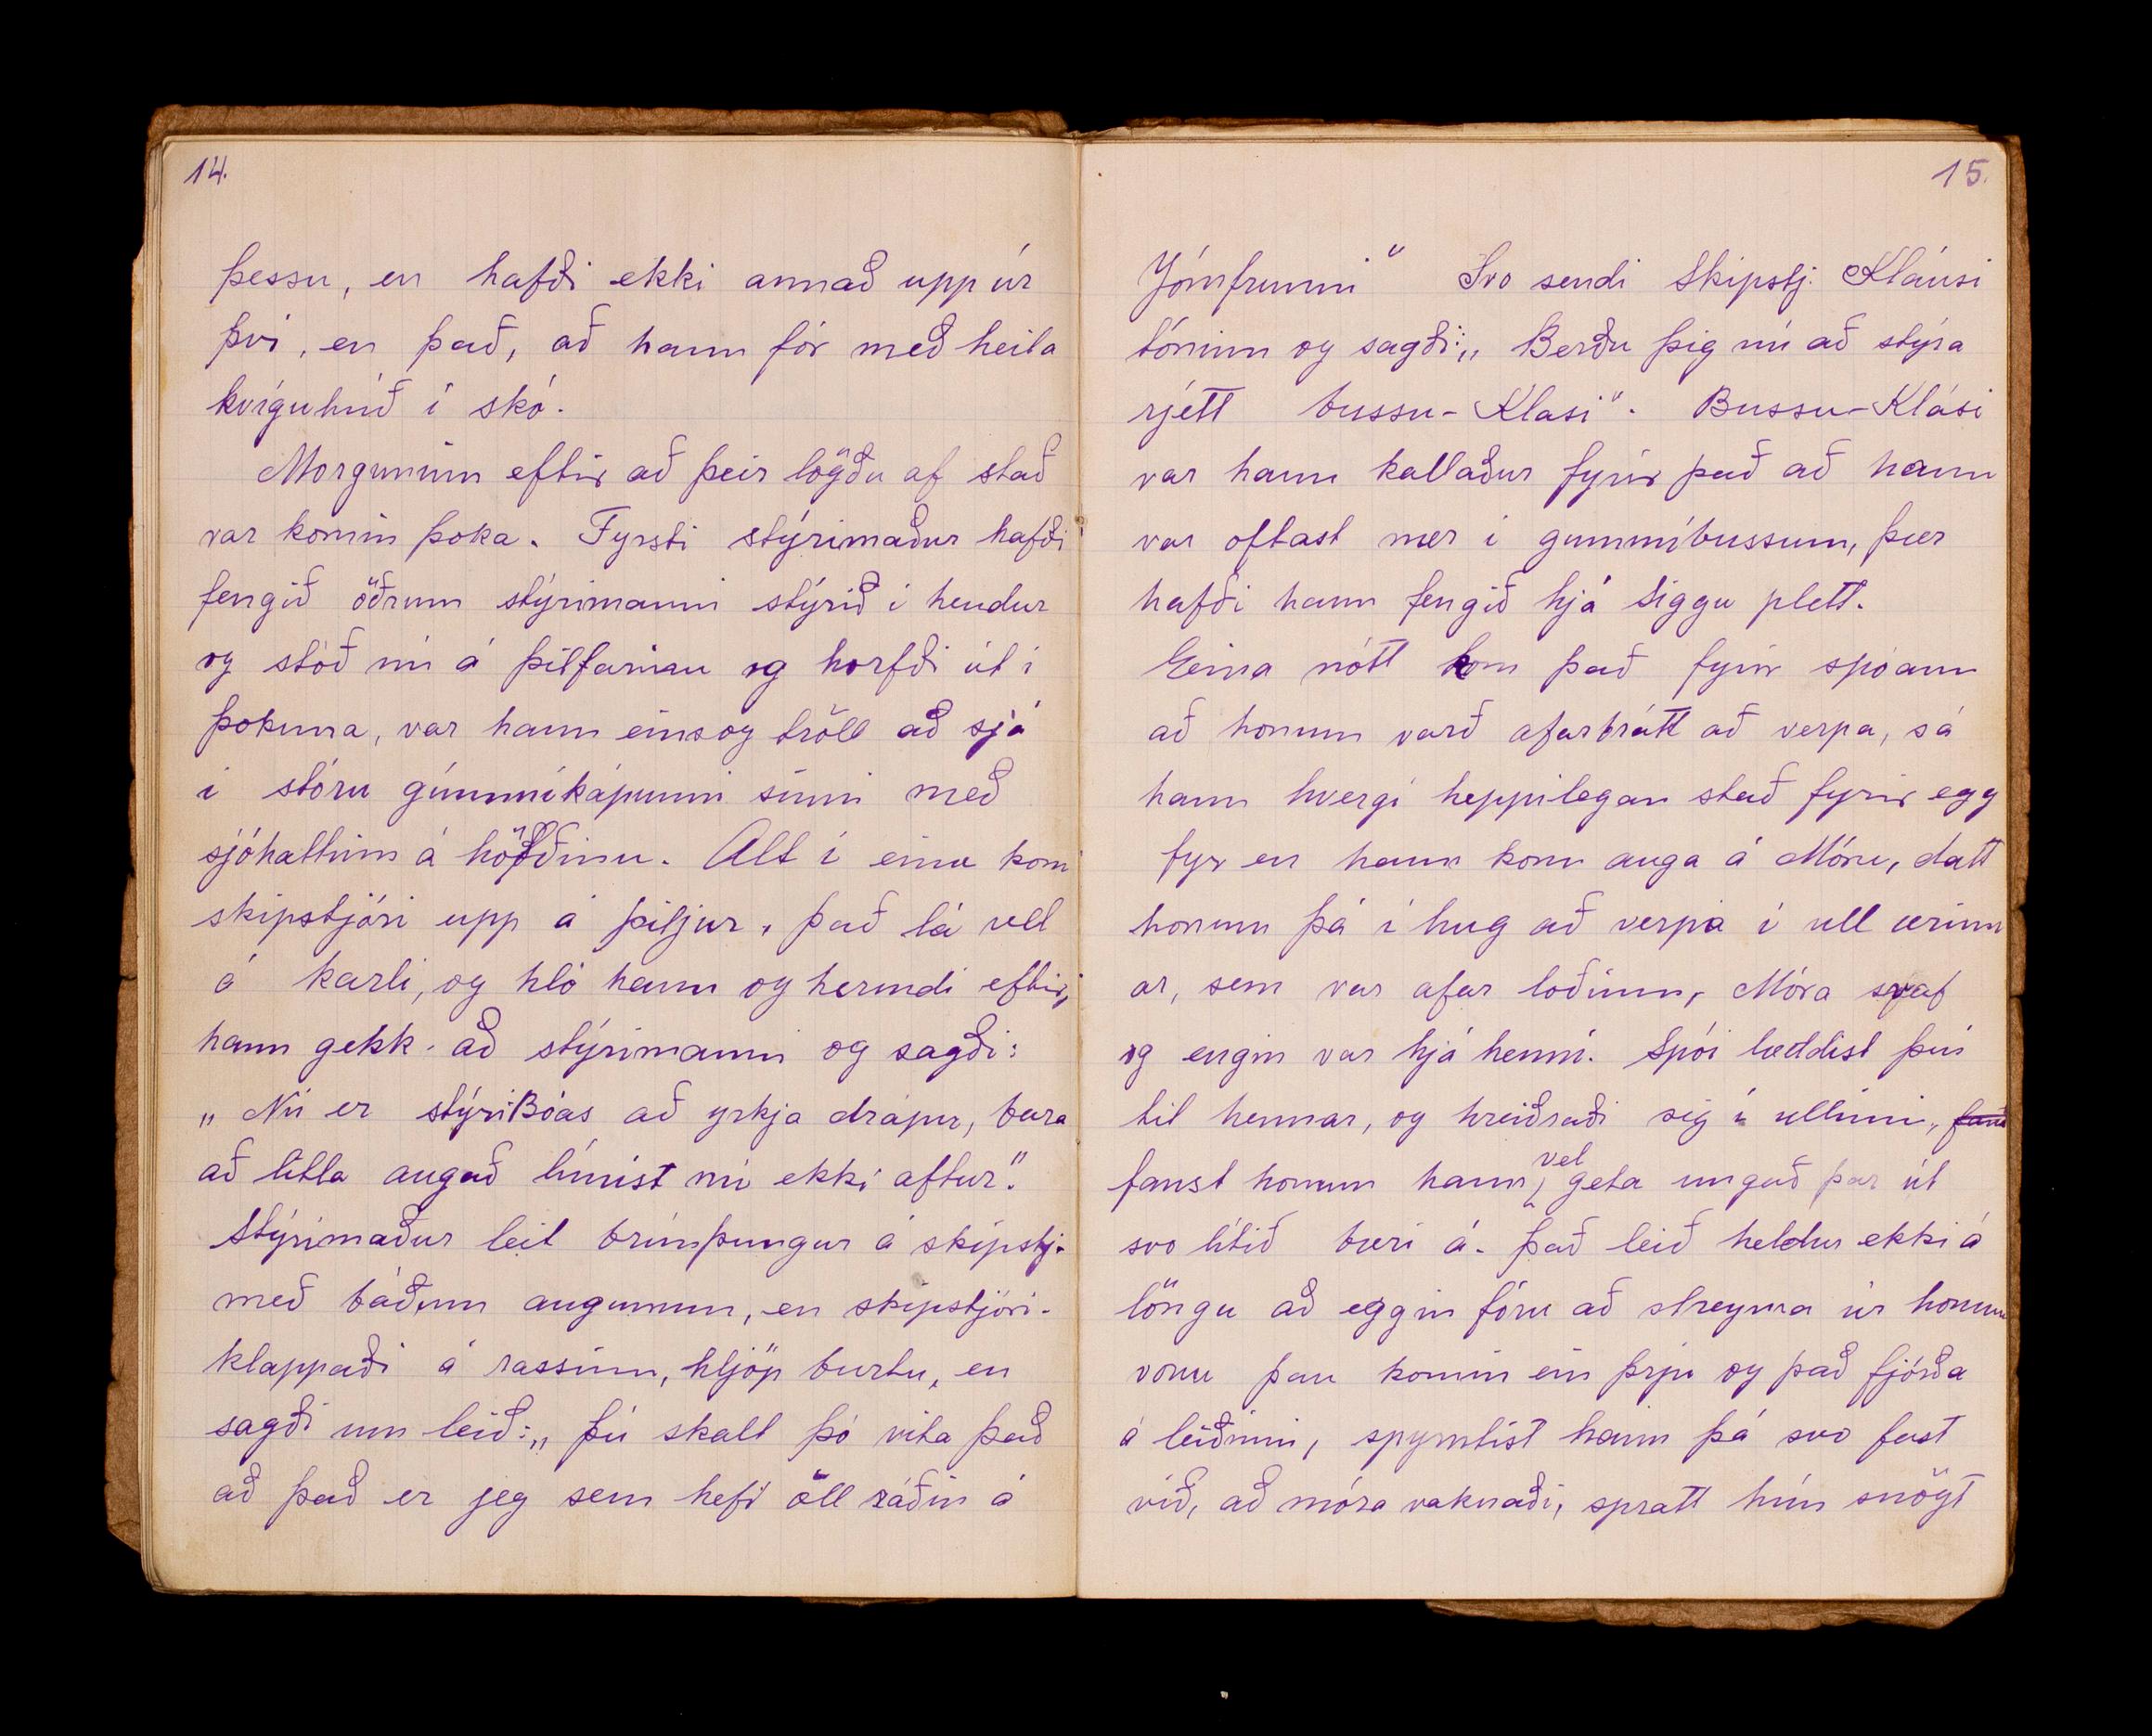 14.
þessu, en hafði ekki annað upp úr
því, en það, að hann fór með heila
kvíguhúð í skó.
Morguninn eftir að þeir lögðu af stað
var komin þoka. Fyrsti stýrimaður hafði
fengið öðrum stýrimanni stýrið í hendur
og stóð nú á þilfarinu og horfði út í
þokuna, var hann eins og tröll að sjá
í stóru gúmmíkápunni sinni með
sjóhattinn á höfðinu. Alt í einu kom
skipstjóri upp á þiljur, það lá vel
á karli, og hló hann og hermdi eftir,
hann gekk að stýrimanni og sagði:
„Nú er stýriBóas að yrkja drápur, bara
að litla augað límist nú ekki aftur."
Stýrimaður leit brúnþungur á skipstj.
með báðum augunum, en skipstjóri
klappaði á rassinn, hljóp burtu, en
sagði um leið: „Þú skalt þó vita það
að það er jeg sem hefi öll ráðin á
15.
Jómfrunni" Svo sendi Skipstj. Kláusi
tóninn og sagði: „Berðu þig nú að stýra
rjett bussu-Klasi". Bussu-Klási
var hann kallaður fyrir það að hann
var oftast mer í gummíbussum, þær
hafði hann fengið hjá Siggu plett.
Eina nótt kom það fyrir spóann
að honum varð afarbrátt að verpa, sá
hann hvergi heppilegan stað fyrir egg
fyr en hann kom auga á Móru, datt
honum þá í hug að verpa í ull ærinn
ar, sem var afar loðinn, Móra svaf
og engin var hjá henni. Spói læddist þú
til hennar, og hreiðraði sig í ullinni, fanst
fanst honum hann vel geta ungað þar út
svo lítið bæri á. það leið heldur ekki á
löngu að eggin fóru að streyma úr honum
voru þau komin ein þrjú og það fjórða
á leiðinni, spyrntist hann þá svo fast
við, að móra vaknaði, spratt hún snögt